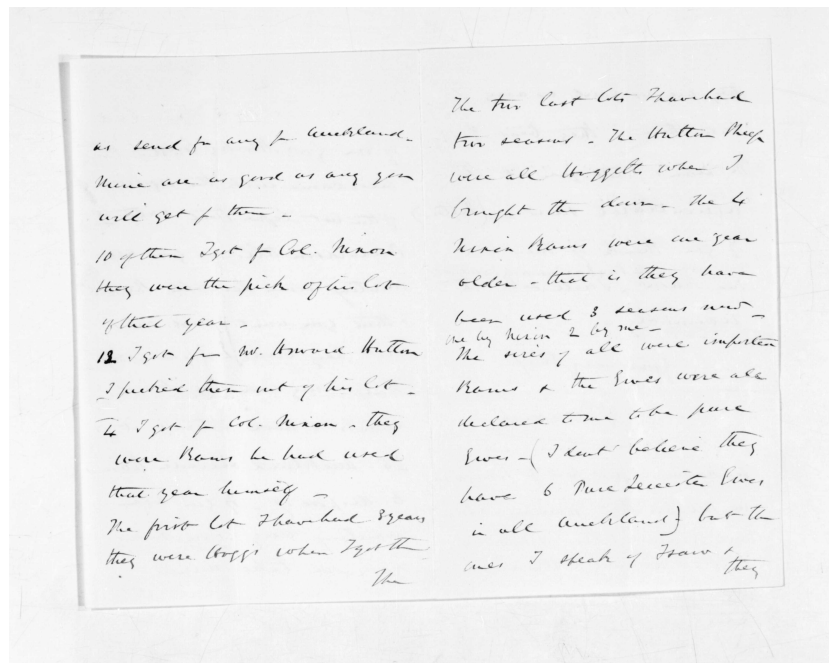 as send for any fr Auckland -
Mine are as good as any you
will get fr them -
10 of them I got fr Col. Nixon
they were the pick of his lot
of that year -
12 I got from Mr. Howard Hutton
I picked them out of his lot -
4 I got fr Col. Nixon - they
were Rams he had used
that year himself -
The first lot I have had 3 years
they were Hoggs when I got them
The
The two last lots I have had
two seasons - The Hutton Sheep
were all Hoggetts when I
brought them down - The 4
Nixon Rams were one year
older - that is they have
been used 3 seasons now -
one by Nixon 2 by me -
The sires of all were imported
Rams & the Ewes were all
declared to me to be pure
Ewes - (I dont believe they
have 6 Pure Leicester Ewes
in all Auckland) but the
ones I speak of I saw &
they